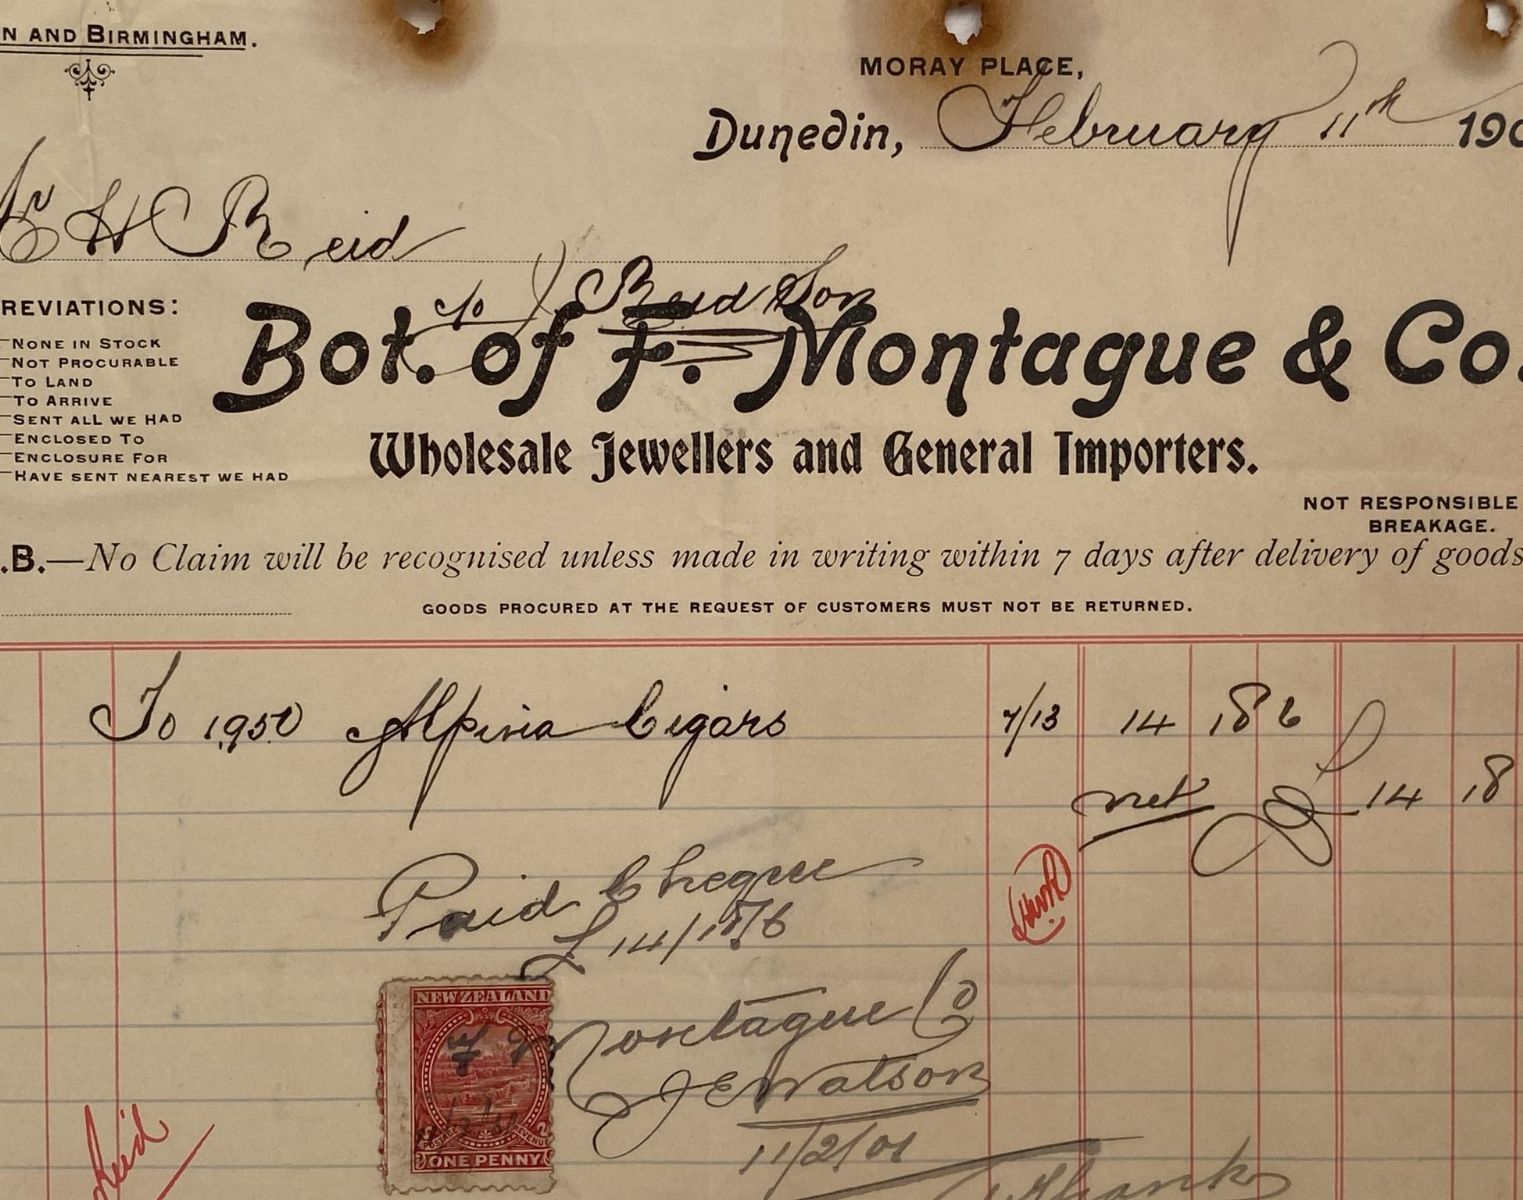 N AND BIRMINGHAM.
MORAY PLACE,
Dunedin, February 11th 190
E H Reid
c/o J Reid Son
REVIATIONS:
NONE IN STOCK
NOT PROCURABLE
TO LAND
TO ARRIVE
SENT ALL WE HAD
ENCLOSED TO
ENCLOSURE FOR
HAVE SENT NEAREST WE HAD
Bot. of F. Montague & Co.
Wholesale Jewellers and General Importers.
NOT RESPONSIBLE
BREAKAGE.
.B.—No Claim will be recognised unless made in writing within 7 days after delivery of goods
GOODS PROCURED AT THE REQUEST OF CUSTOMERS MUST NOT BE RETURNED.
To 1950 Alpina Cigars 7/13 14 18 6
net £ 14 18
Paid Cheque
£14/18/6
NEW ZEALAND
F Montague Co
J E Watson
11/2/01
POSTAGE REVENUE
ONE PENNY
11/2/01
Reid
Thanks